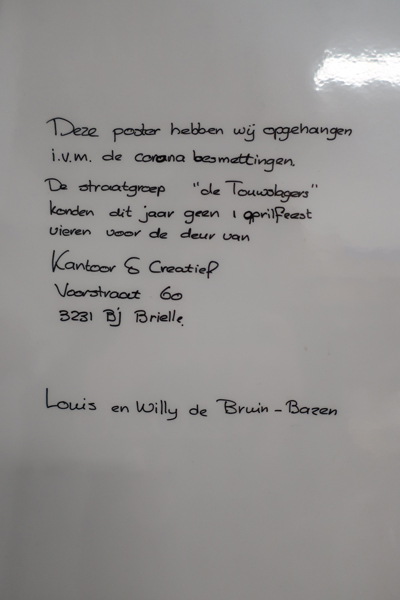 Deze poster hebben wij opgehangen
i.v.m. de corona besmettingen.
De straatgroep "de Touwslagers"
konden dit jaar geen 1 aprilfeest
vieren voor de deur van
Kantoor & Creatief
Voorstraat 60
3231 BJ Brielle.
Louis en Willy de Bruin - Bazen